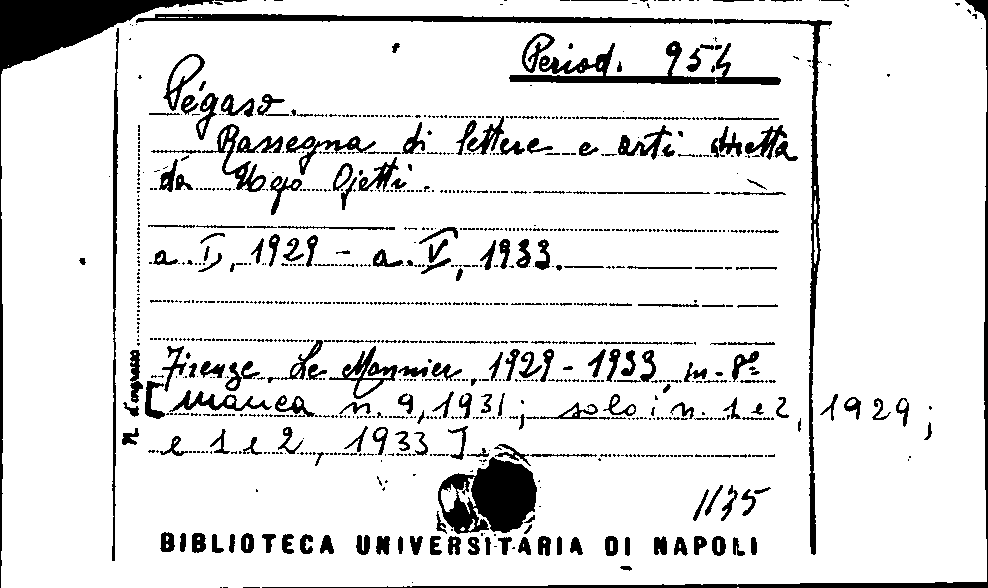 Period. 954
Pégaso.
Rassegna di lettere e arti diretta
da Ugo Ojetti.
a. I, 1929 - a. V, 1933.
Firenze, Le Monnier, 1929 - 1933, in-8º
[manca n. 9, 1931; solo i n. 1 e 2, 1929;
e 1 e 2, 1933]
N. d'ingresso
1135
BIBLIOTECA UNIVERSITARIA DI NAPOLI